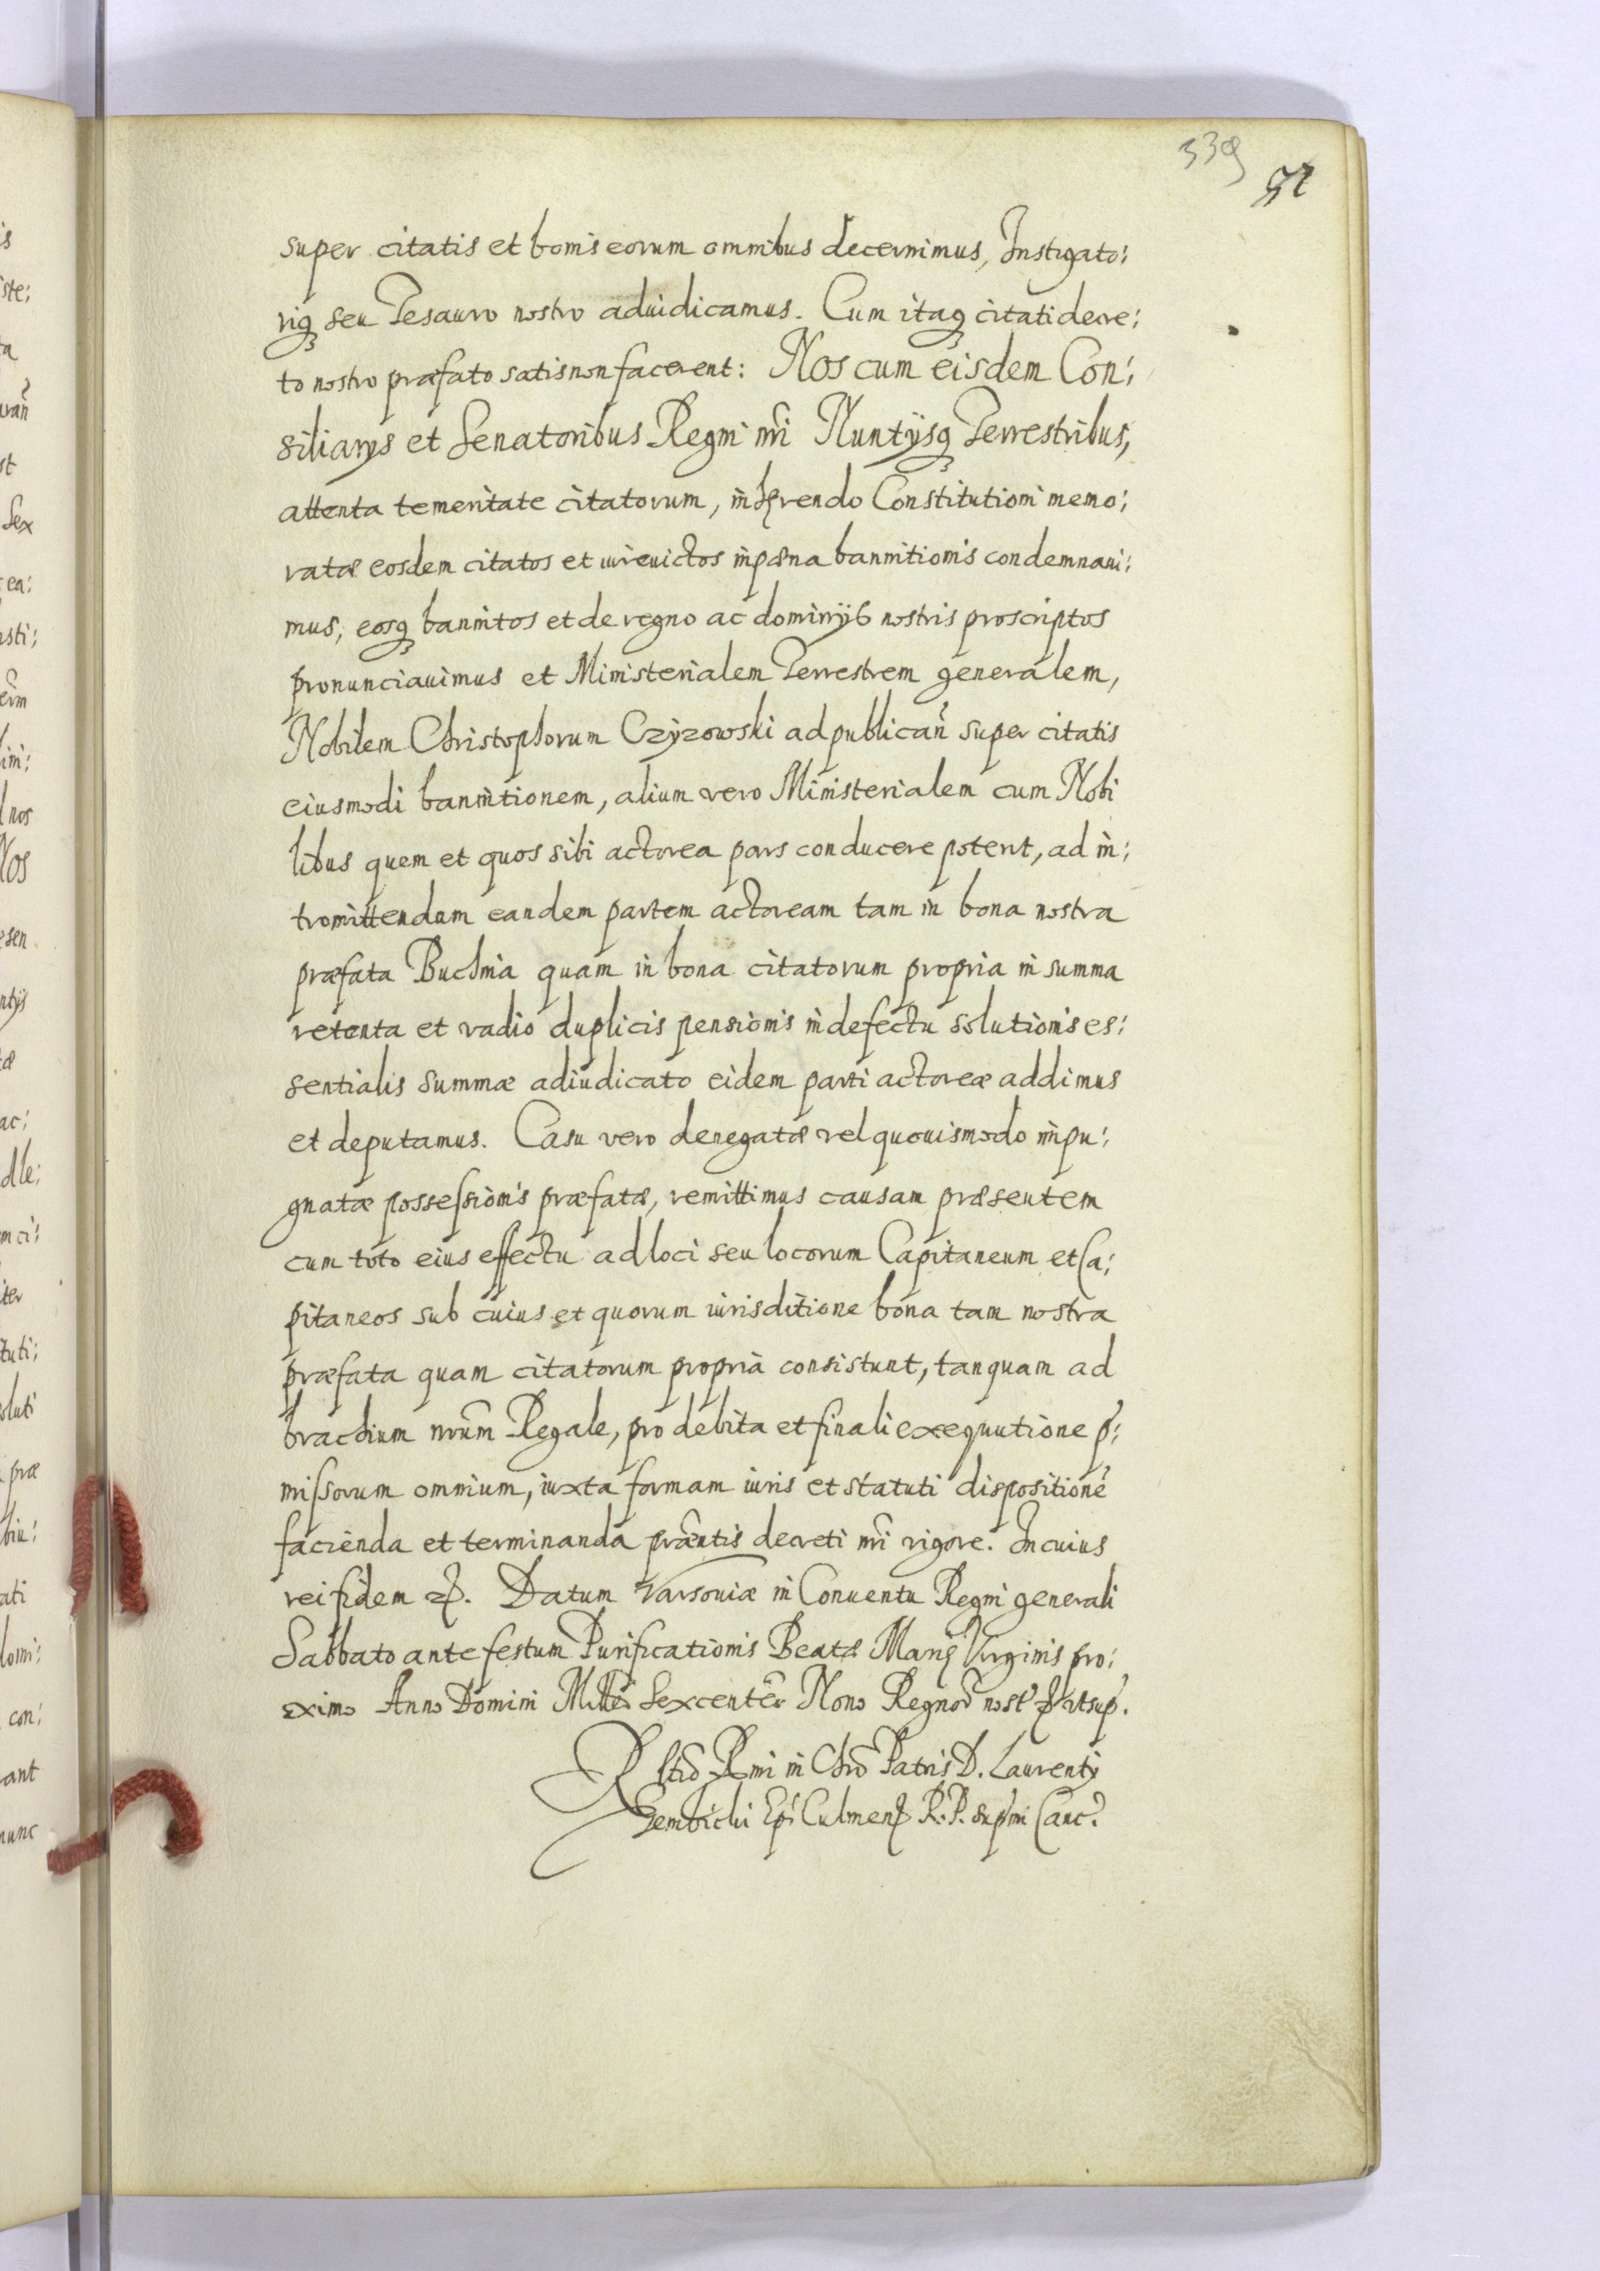 339
super citatis et bonis eorum omnibus decernimus, Instigato:
riq seu Tesauro nostro adiudicamus. Cum itaq citati decre:
to nostro præfato satis non facerent: Nos cum eisdem Con:
siliarys et Senatoribus Regni nri Nuntÿsq Terrestribus,
attenta temeritate citatorum, inhęrendo Constitutioni memo:
ratæ eosdem citatos et iure uictos in pæna bannitionis condemnaui:
mus, eosq bannitos et de regno ac dominÿs nostris proscriptos
pronunciauimus et Ministerialem Terrestrem generalem,
Nobilem Christophorum Czÿzowski ad publican super citatis
eiusmodi bannitionem, alium vero Ministerialem cum Nobi
libus quem et quos sibi actorea pars conducere poterit, ad in:
tromittendum eandem partem actoream tam in bona nostra
præfata Buchnia quam in bona citatorum propria in summa
retenta et vadio duplicis pensionis in defectu solutionis es:
sentialis summæ adiudicato eidem parti actoreæ addimus
et deputamus. Casu vero denegatæ vel quouismodo impu:
gnatæ possessionis præfatæ, remittimus causam præsentem
cum toto eius effectu ad loci seu locorum Capitaneum et Ca:
pitaneos sub cuius et quorum iurisditione bona tam nostra
præfata quam citatorum propria consistunt, tanquam ad
brachium nrum Regale, pro debita et finali exequutione p:
missorum omnium, iuxta formam iuris et statuti dispositione
facienda et terminanda præntis decreti nri rigore. In cuius
rei fidem etc. Datum Varsouiæ in Conuentu Regni generali
Sabbato ante festum Purificationis Beatæ Marię Virginis pro:
ximo Anno Domini Milles Sexcenter Nono Regnor nost etc ut sup.
Rltio Rmi in Chro Patris D. Laurentÿ
Gembicki Epi Culmen R. P. supmi Canc.